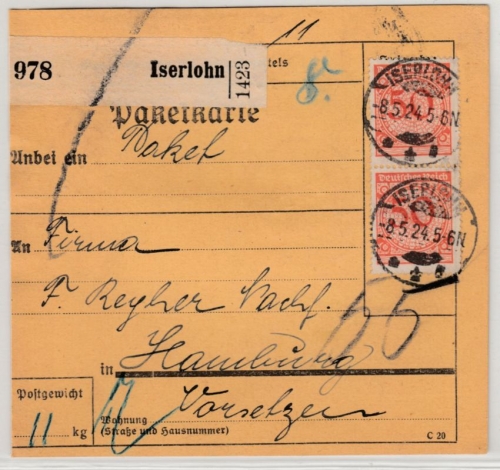 11
978 Iserlohn 1423
8.
Paketkarte
Anbei ein Paket
ISERLOHN
-8.5.24.5-6N
Deutsches Reich
50
ISERLOHN
-8.5.24.5-6N
An Firma
F. Reyher Nachf.
in Hamburg
Vorsetzen
Postgewicht
11 kg
Wohnung
(Straße und Hausnummer)
C 20